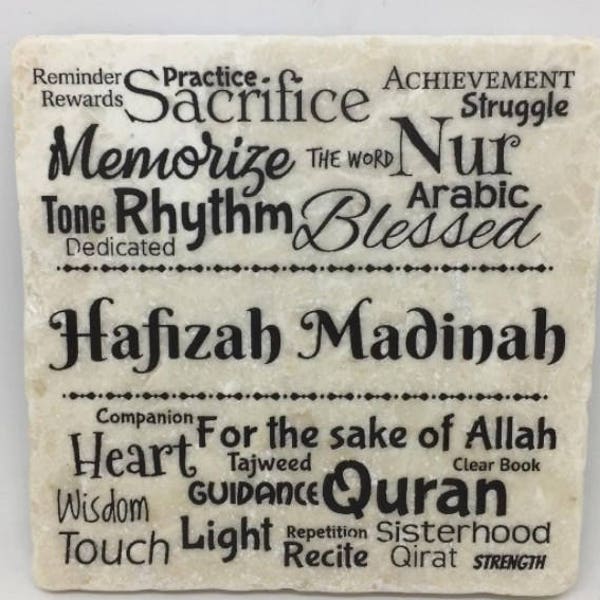 Reminder Practice ACHIEVEMENT
Rewards Sacrifice Struggle
Memorize THE WORD Nur
Tone Rhythm Arabic
Dedicated Blessed
Hafizah Madinah
Companion For the sake of Allah
Heart Tajweed Clear Book
Wisdom GUIDANCE Quran
Touch Light Repetition Sisterhood
Recite Qirat STRENGTH